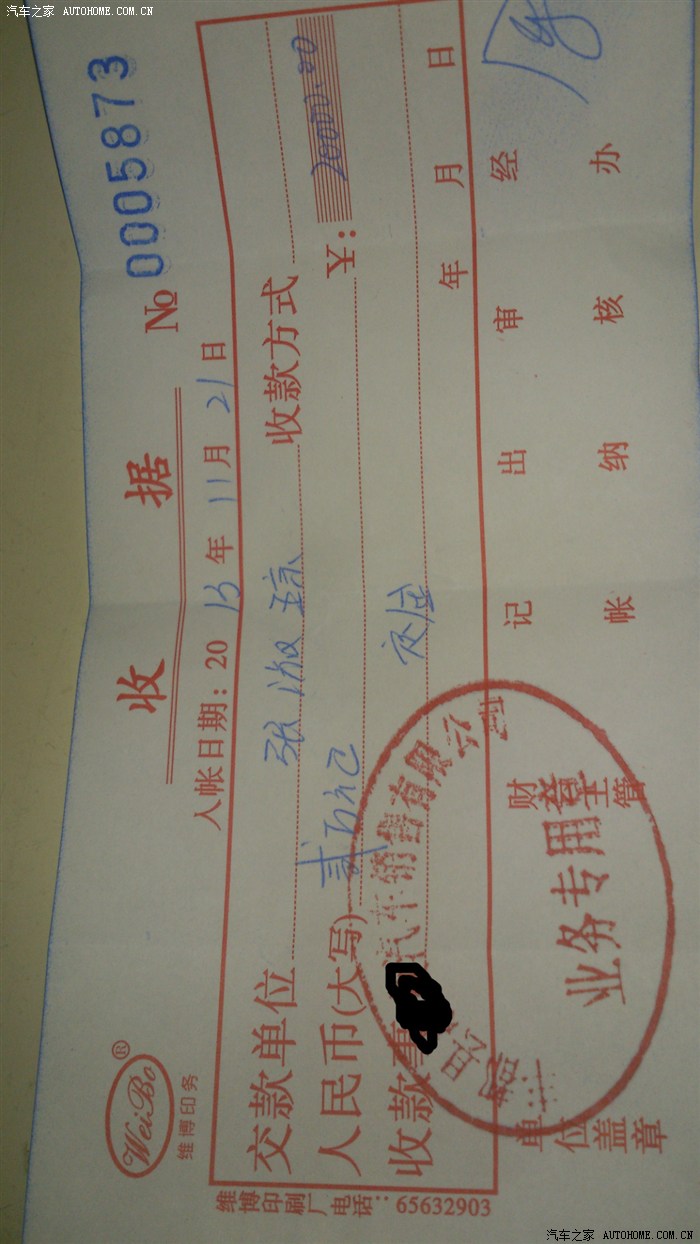 汽车之家 AUTOHOME.COM.CN
WeiBo®
维博印务
收 据
№ 0005873
入帐日期：2013年11月21日
交款单位 张淑琼 收款方式
人民币(大写) 贰万元 ￥：20000.00
收款事 定金
年 月 日
单位盖章 财务主管 记帐 出纳 审核 经办
汽车销售有限公司
业务专用章
维博印刷厂电话：65632903
汽车之家 AUTOHOME.COM.CN